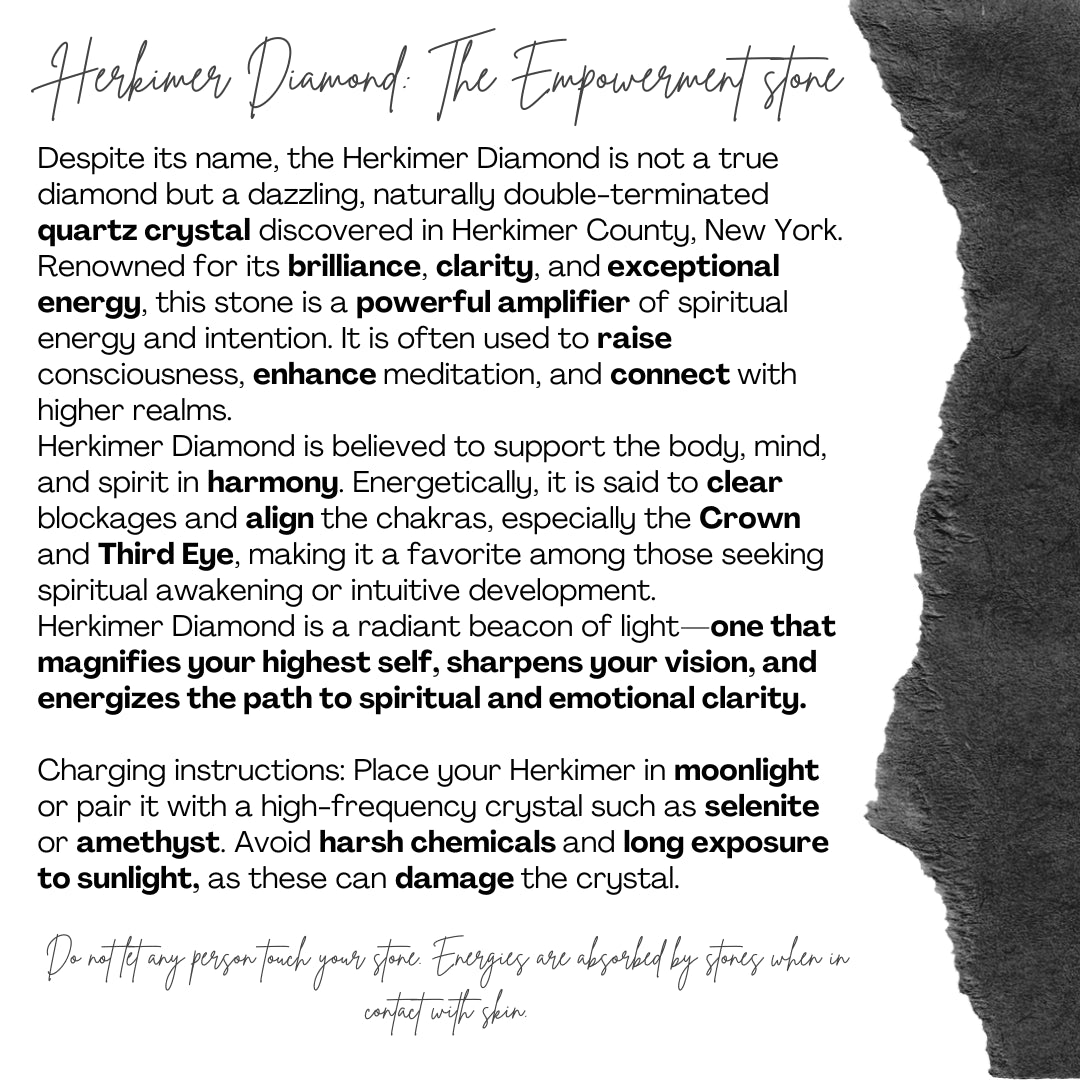 Herkimer Diamond: The Empowerment stone
Despite its name, the Herkimer Diamond is not a true
diamond but a dazzling, naturally double-terminated
quartz crystal discovered in Herkimer County, New York.
Renowned for its brilliance, clarity, and exceptional
energy, this stone is a powerful amplifier of spiritual
energy and intention. It is often used to raise
consciousness, enhance meditation, and connect with
higher realms.
Herkimer Diamond is believed to support the body, mind,
and spirit in harmony. Energetically, it is said to clear
blockages and align the chakras, especially the Crown
and Third Eye, making it a favorite among those seeking
spiritual awakening or intuitive development.
Herkimer Diamond is a radiant beacon of light—one that
magnifies your highest self, sharpens your vision, and
energizes the path to spiritual and emotional clarity.
Charging instructions: Place your Herkimer in moonlight
or pair it with a high-frequency crystal such as selenite
or amethyst. Avoid harsh chemicals and long exposure
to sunlight, as these can damage the crystal.
Do not let any person touch your stone. Energies are absorbed by stones when in
contact with skin.